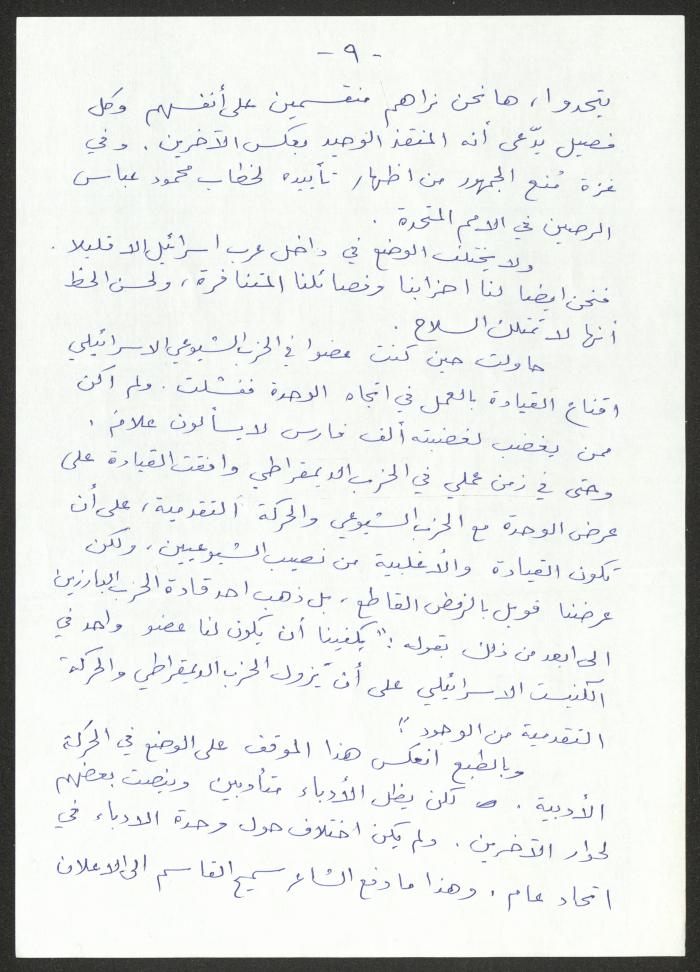 - ٩ -
يتحدوا، ها نحن نراهم منقسمين على أنفسهم وكل
فصيل يدّعي أنه المنقذ الوحيد بعكس الآخرين. وفي
غزة مُنع الجمهور من اظهار تأييده لخطاب محمود عباس
الرصين في الامم المتحدة.
ولا يختلف الوضع في داخل عرب اسرائيل الا قليلا.
فنحن ايضا لنا احزابنا وفصائلنا المتنافرة، ولحسن الحظ
أنها لا تمتلك السلاح.
حاولت حين كنت عضوا في الحزب الشيوعي الاسرائيلي
اقناع القيادة بالعمل في اتجاه الوحدة ففشلت. ولم اكن
ممن يغضب لغضبته ألف فارس لا يسألون علامَ.
وحتى في زمن عملي في الحزب الديمقراطي وافقت القيادة على
عرض الوحدة مع الحزب الشيوعي والحركة التقدمية، على أن
تكون القيادة والأغلبية من نصيب الشيوعيين، ولكن
عرضنا قوبل بالرفض القاطع، بل ذهب احد قادة الحزب البارزين
الى ابعد من ذلك بقوله: "يكفينا أن يكون لنا عضو واحد في
الكنيست الاسرائيلي على أن يزول الحزب الديمقراطي والحركة
التقدمية من الوجود"!
وبالطبع انعكس هذا الموقف على الوضع في الحركة
الأدبية. لكن يظل الأدباء متأدبين وينصت بعضهم
لحوار الآخرين. ولم يكن اختلاف حول وحدة الادباء في
اتحاد عام. وهذا ما دفع الشاعر سميح القاسم الى الاعلان